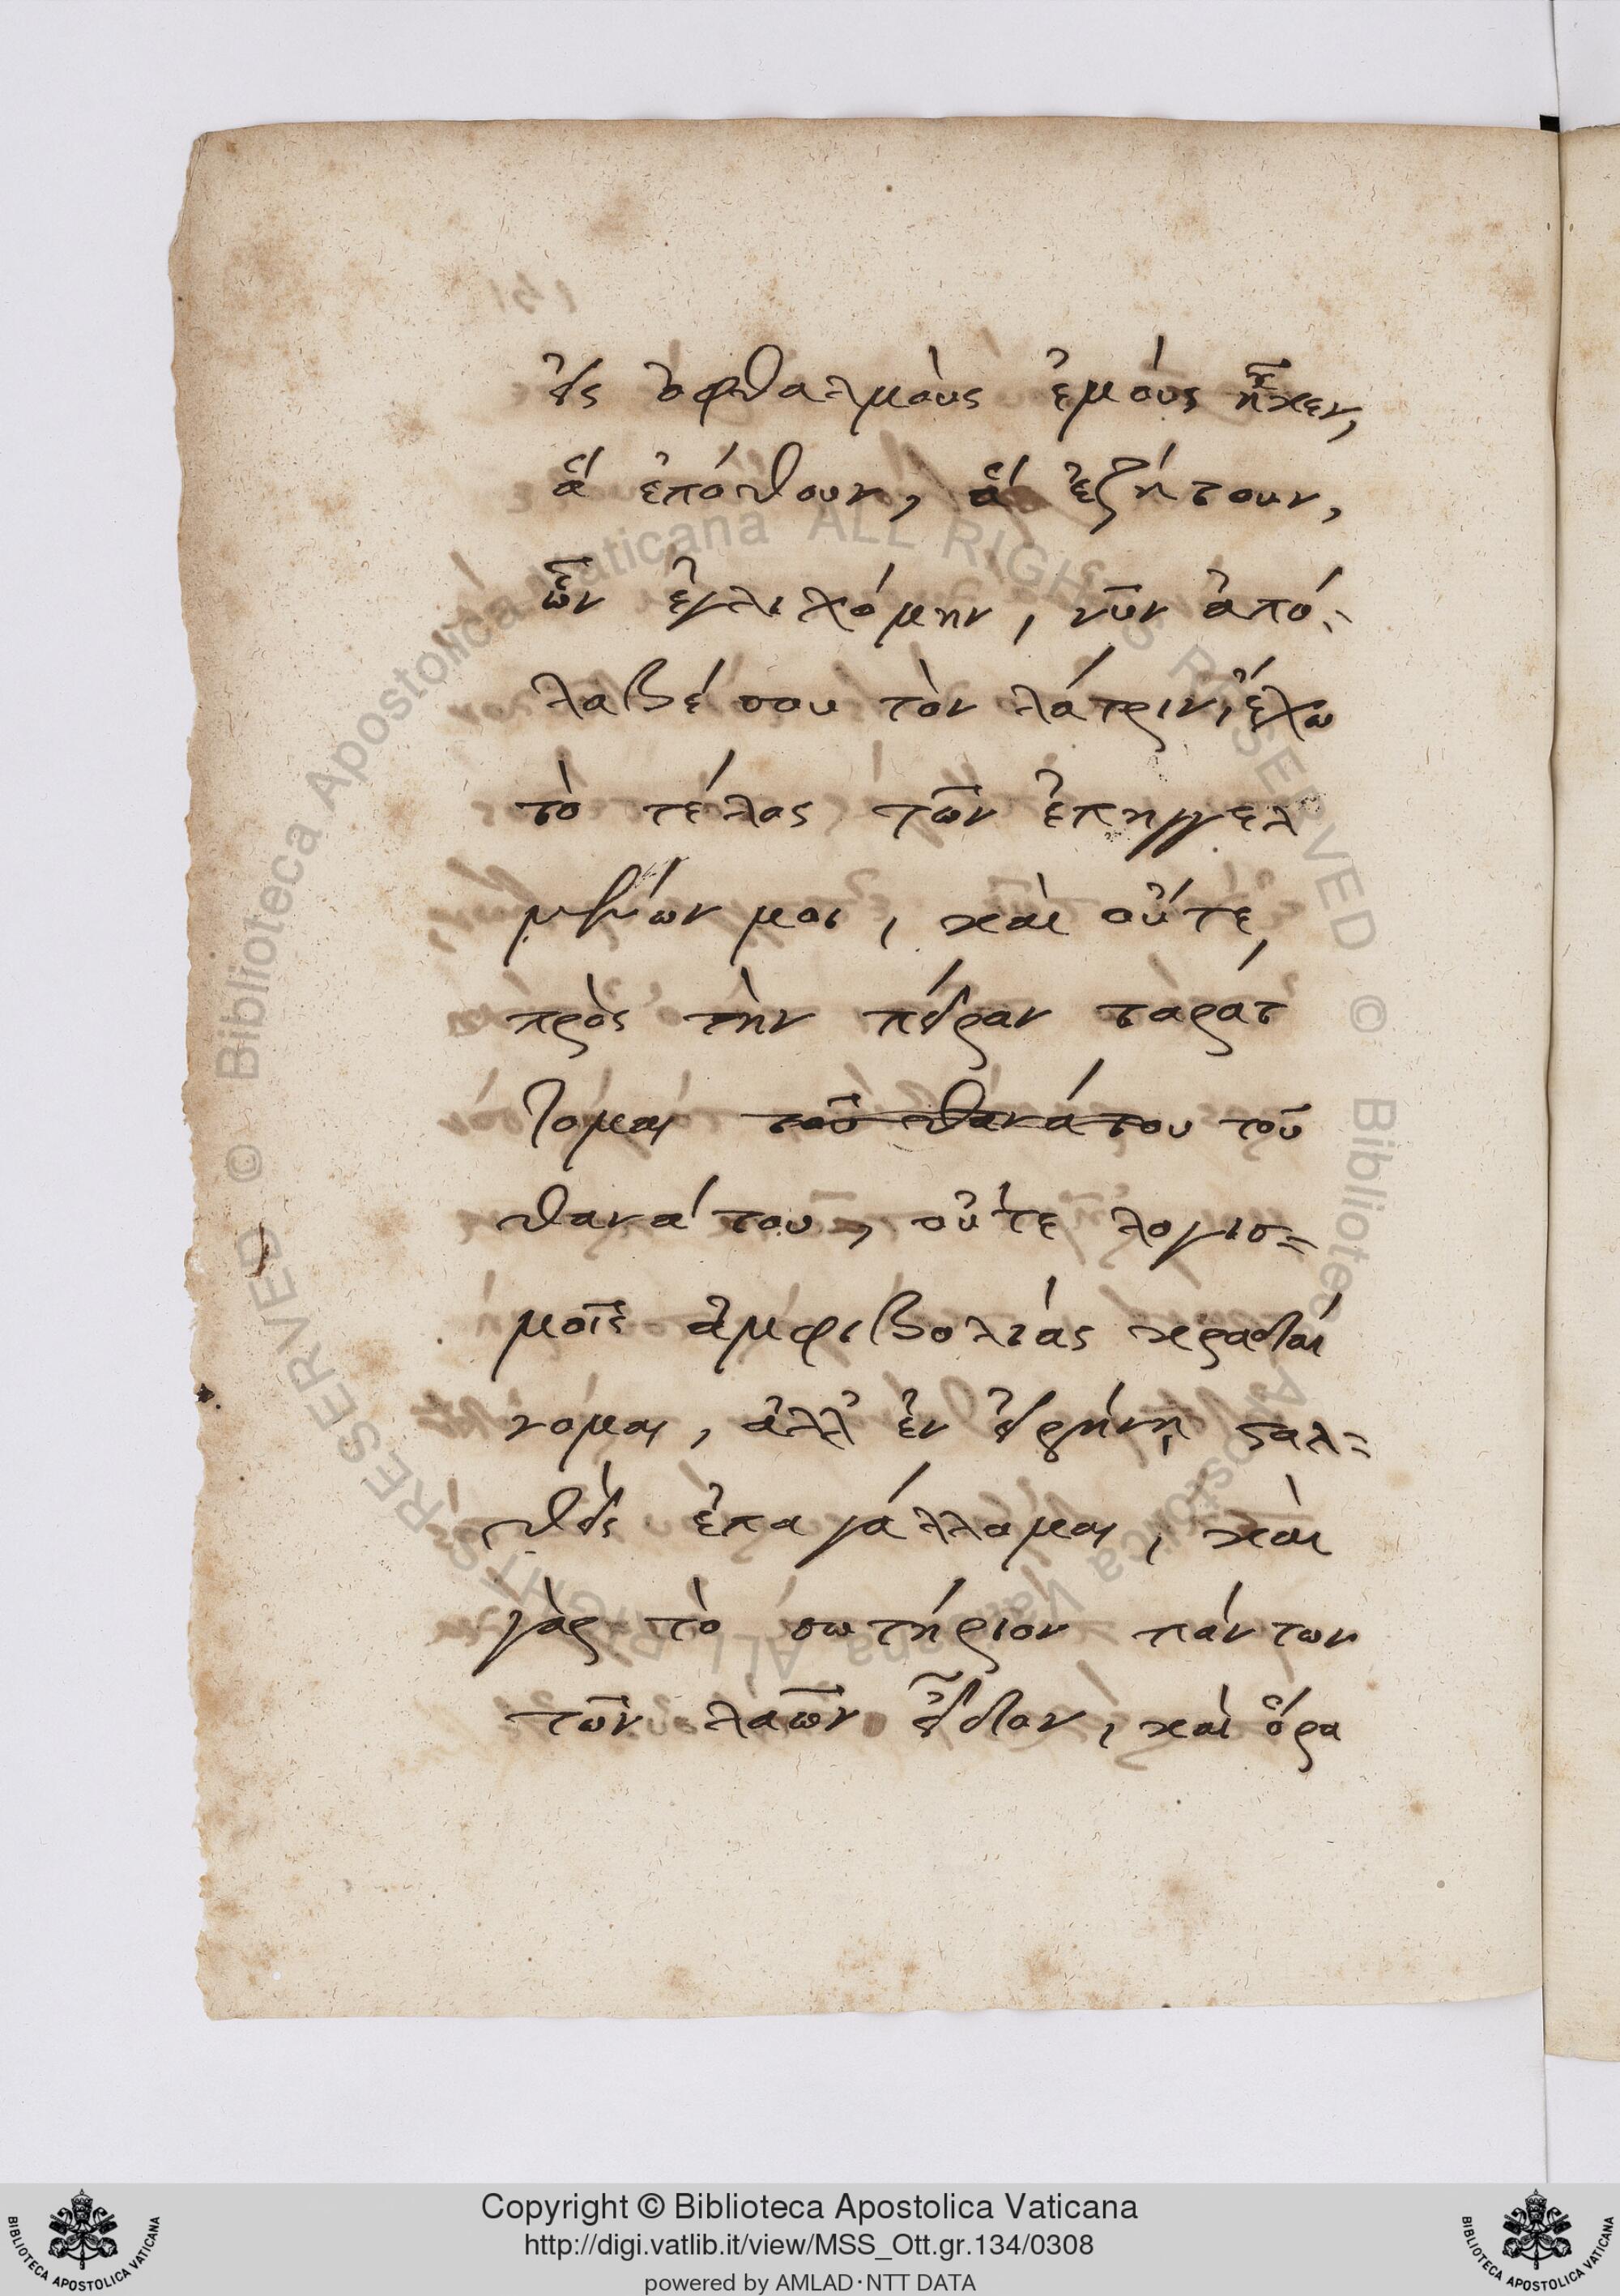 εἰς ὀφθαλμοὺς ἐμοὺς ἧκεν,
ἃ ἐπόθουν, ἃ ἐζήτουν,
ὧν ἐγλιχόμην, νῦν ἀπό-
λαβέ σου τὸν λάτριν, ἔχω
τὸ τέλος τῶν ἐπηγγελ
μένων μοι, καὶ οὔτε
πρὸς τὴν πεῖραν ταράτ
τομαι τοῦ θανάτου τοῦ
θανάτου, οὔτε λογισ-
μοῖς ἀμφιβολίας κραδαί
νομαι, ἀλλ' ἐν εἰρήνῃ σταλ-
θεὶς ἐπαγάλλομαι, καὶ
γὰρ τὸ σωτήριον πάντων
τῶν λαῶν εἶδον, καὶ ὅρα
Copyright © Biblioteca Apostolica Vaticana
http://digi.vatlib.it/view/MSS_Ott.gr.134/0308
powered by AMLAD·NTT DATA
BIBLIOTECA APOSTOLICA VATICANA
BIBLIOTECA APOSTOLICA VATICANA
© Biblioteca Apostolica Vaticana ALL RIGHTS RESERVED
© Biblioteca Apostolica Vaticana ALL RIGHTS RESERVED